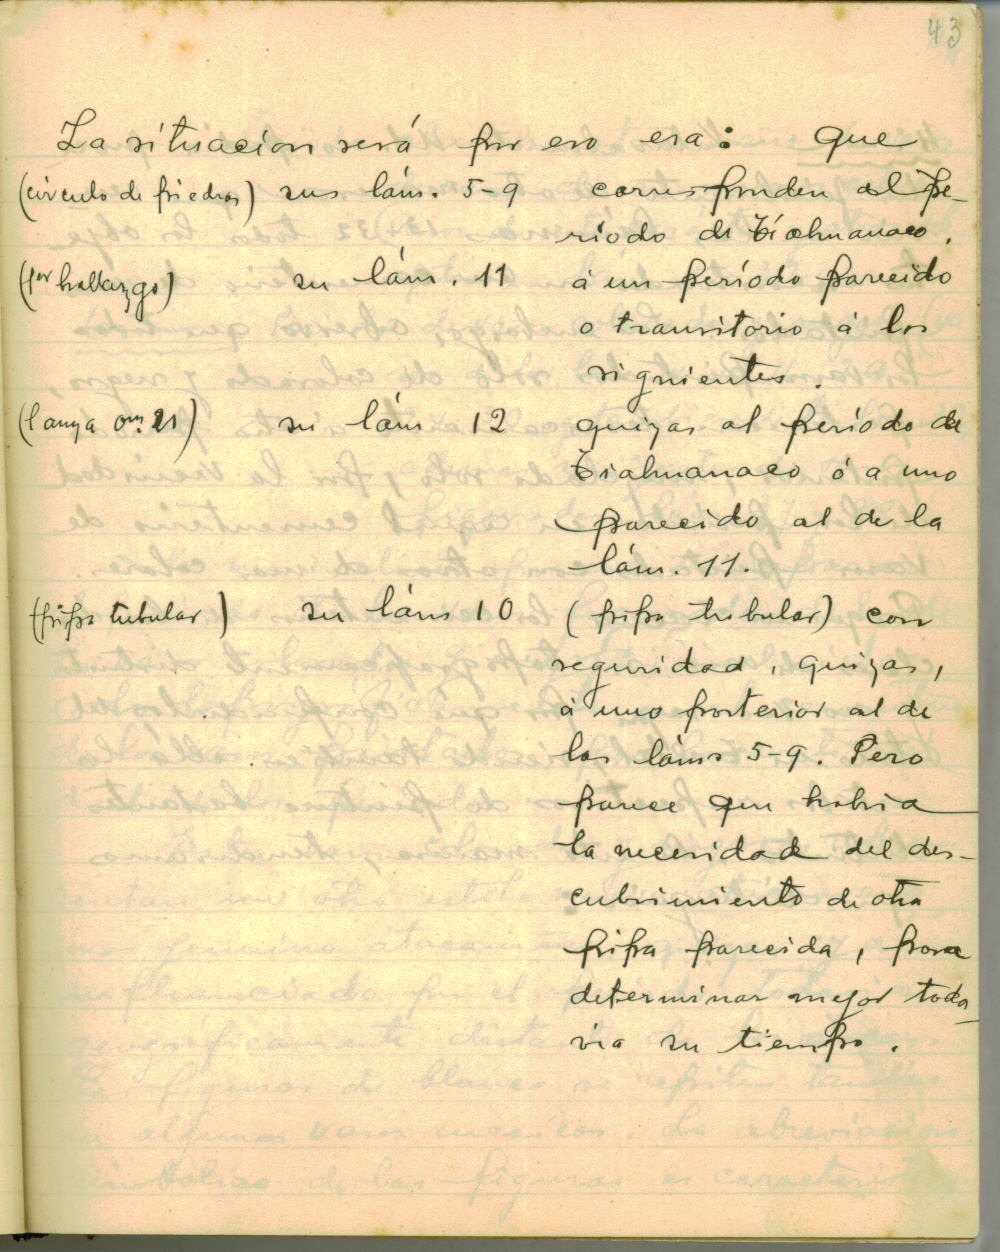 43
La situacion será por eso esa: que
(circulo de piedras) sus lám. 5-9 corresponden al pe-
riodo de Tiahuanaco.
(por hallazgo) su lám. 11 á un período parecido
o transitorio á los
siguientes.
su lám 12 quizas al período de
Tiahuanaco ó a uno
parecido al de la
lám. 11.
(pipa tubular) su lám 10 (pipa tubular) con
seguridad, quizas,
á uno posterior al de
las láms 5-9. Pero
parece que habria
la necesidad del des-
cubrimiento de otra
pipa parecida, para
determinar mejor toda-
via su tiempo.